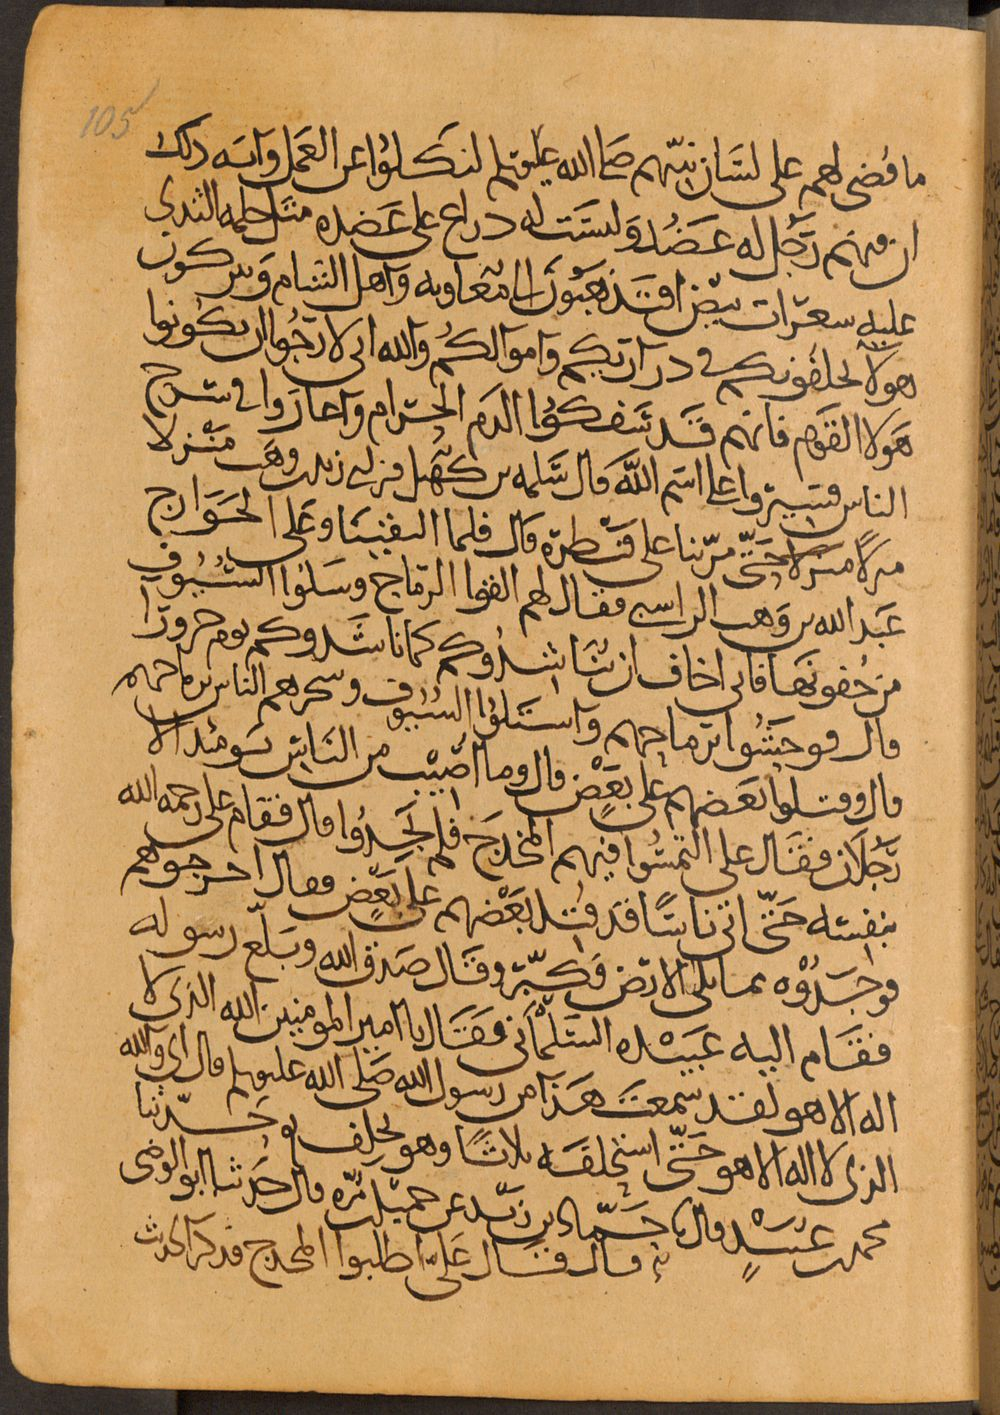 105
ما قضى لهم على لسان نبيهم صلى الله عليه وسلم لنكلوا عن العمل وآية ذلك
ان فيهم رجل له عضد وليست له ذراع على عضده مثل حلمة الثدي
عليه شعرات بيض افتذهبون الى معاويه واهل الشام وتتركون
هولا يخلفونكم في ذراريكم واموالكم والله اني لارجوا ان يكونوا
هولا القوم فانهم قد سفكوا الدم الحرام واغاروا في سرح
الناس فسيروا على اسم الله قال سلمه بن كهيل فنزلني زيد بن وهب منزلا
منزلا منزلا حتى مررنا على قنطرة قال فلما التقينا وعلى الخوارج
عبد الله بن وهب الراسبي فقال لهم القوا الرماح وسلوا السيوف
من جفونها فاني اخاف ان يناشدوكم كما ناشدوكم يوم حرورا
قال فوحشوا برماحهم واستلوا السيوف وشجرهم الناس برماحهم
قال وقتلوا بعضهم على بعض قال وما اصيب من الناس يومئذ الا
رجلان فقال علي التمسوا فيهم المخدج فلم يجدوا قال فقام على رحمه الله
بنفسه حتى اتى ناسا قد قتل بعضهم على بعض فقال اخرجوهم
فوجدوه مما يلي الارض فكبر وقال صدق الله وبلغ رسوله
فقام اليه عبيده السلماني فقال يا امير المومنين الله الذي لا
اله الا هو لقد سمعت هذا من رسول الله صلى الله عليه وسلم قال اي والله
الذي لا اله الا هو حتى استحلفه ثلاثا وهو يحلف له حدثنا
محمد بن عبيد قال حماد بن زيد عن جميل بن مره قال حدثنا ابو الوضي
قال قال علي اطلبوا المخدج فذكر الحديث